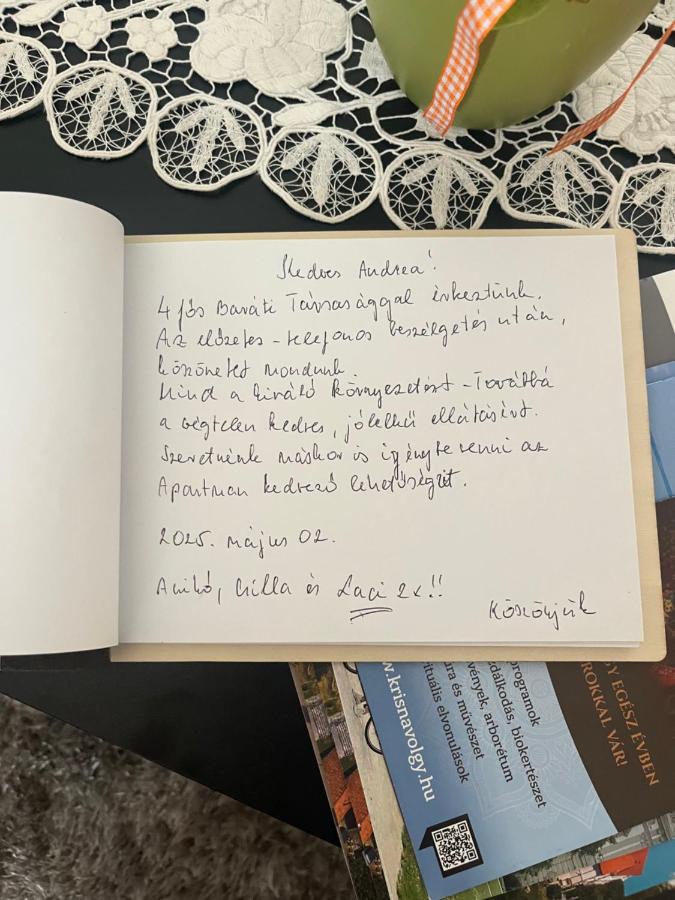 Kedves Andrea!
4 fős Baráti Társasággal érkeztünk.
Az előzetes - telefonos beszélgetés után,
köszönetet mondunk.
Mind a kiváló környezetért - Továbbá
a végtelen kedves, jólelkű ellátásért.
Szeretnénk máskor is igénybe venni az
Apartman kedvező lehetőségét.
2025. május 02.
Anikó, Csilla és Laci 2x!!
Köszönjük
programok
zdálkodás, biokertészet
vények, arborétum
ura és művészet
rituális elvonulások
w.krisnavolgy.hu
GY EGÉSZ ÉVBEN
ROKKAL VÁR!